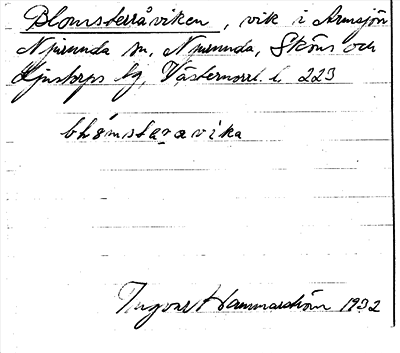 Blomsterråviken, vik i Armsjön
Njurunda sn, Njurunda, Sköns och
Ljustorps tg, Västernorrl. l. 223
blómstaravika
Ingvar Hammarström 1932